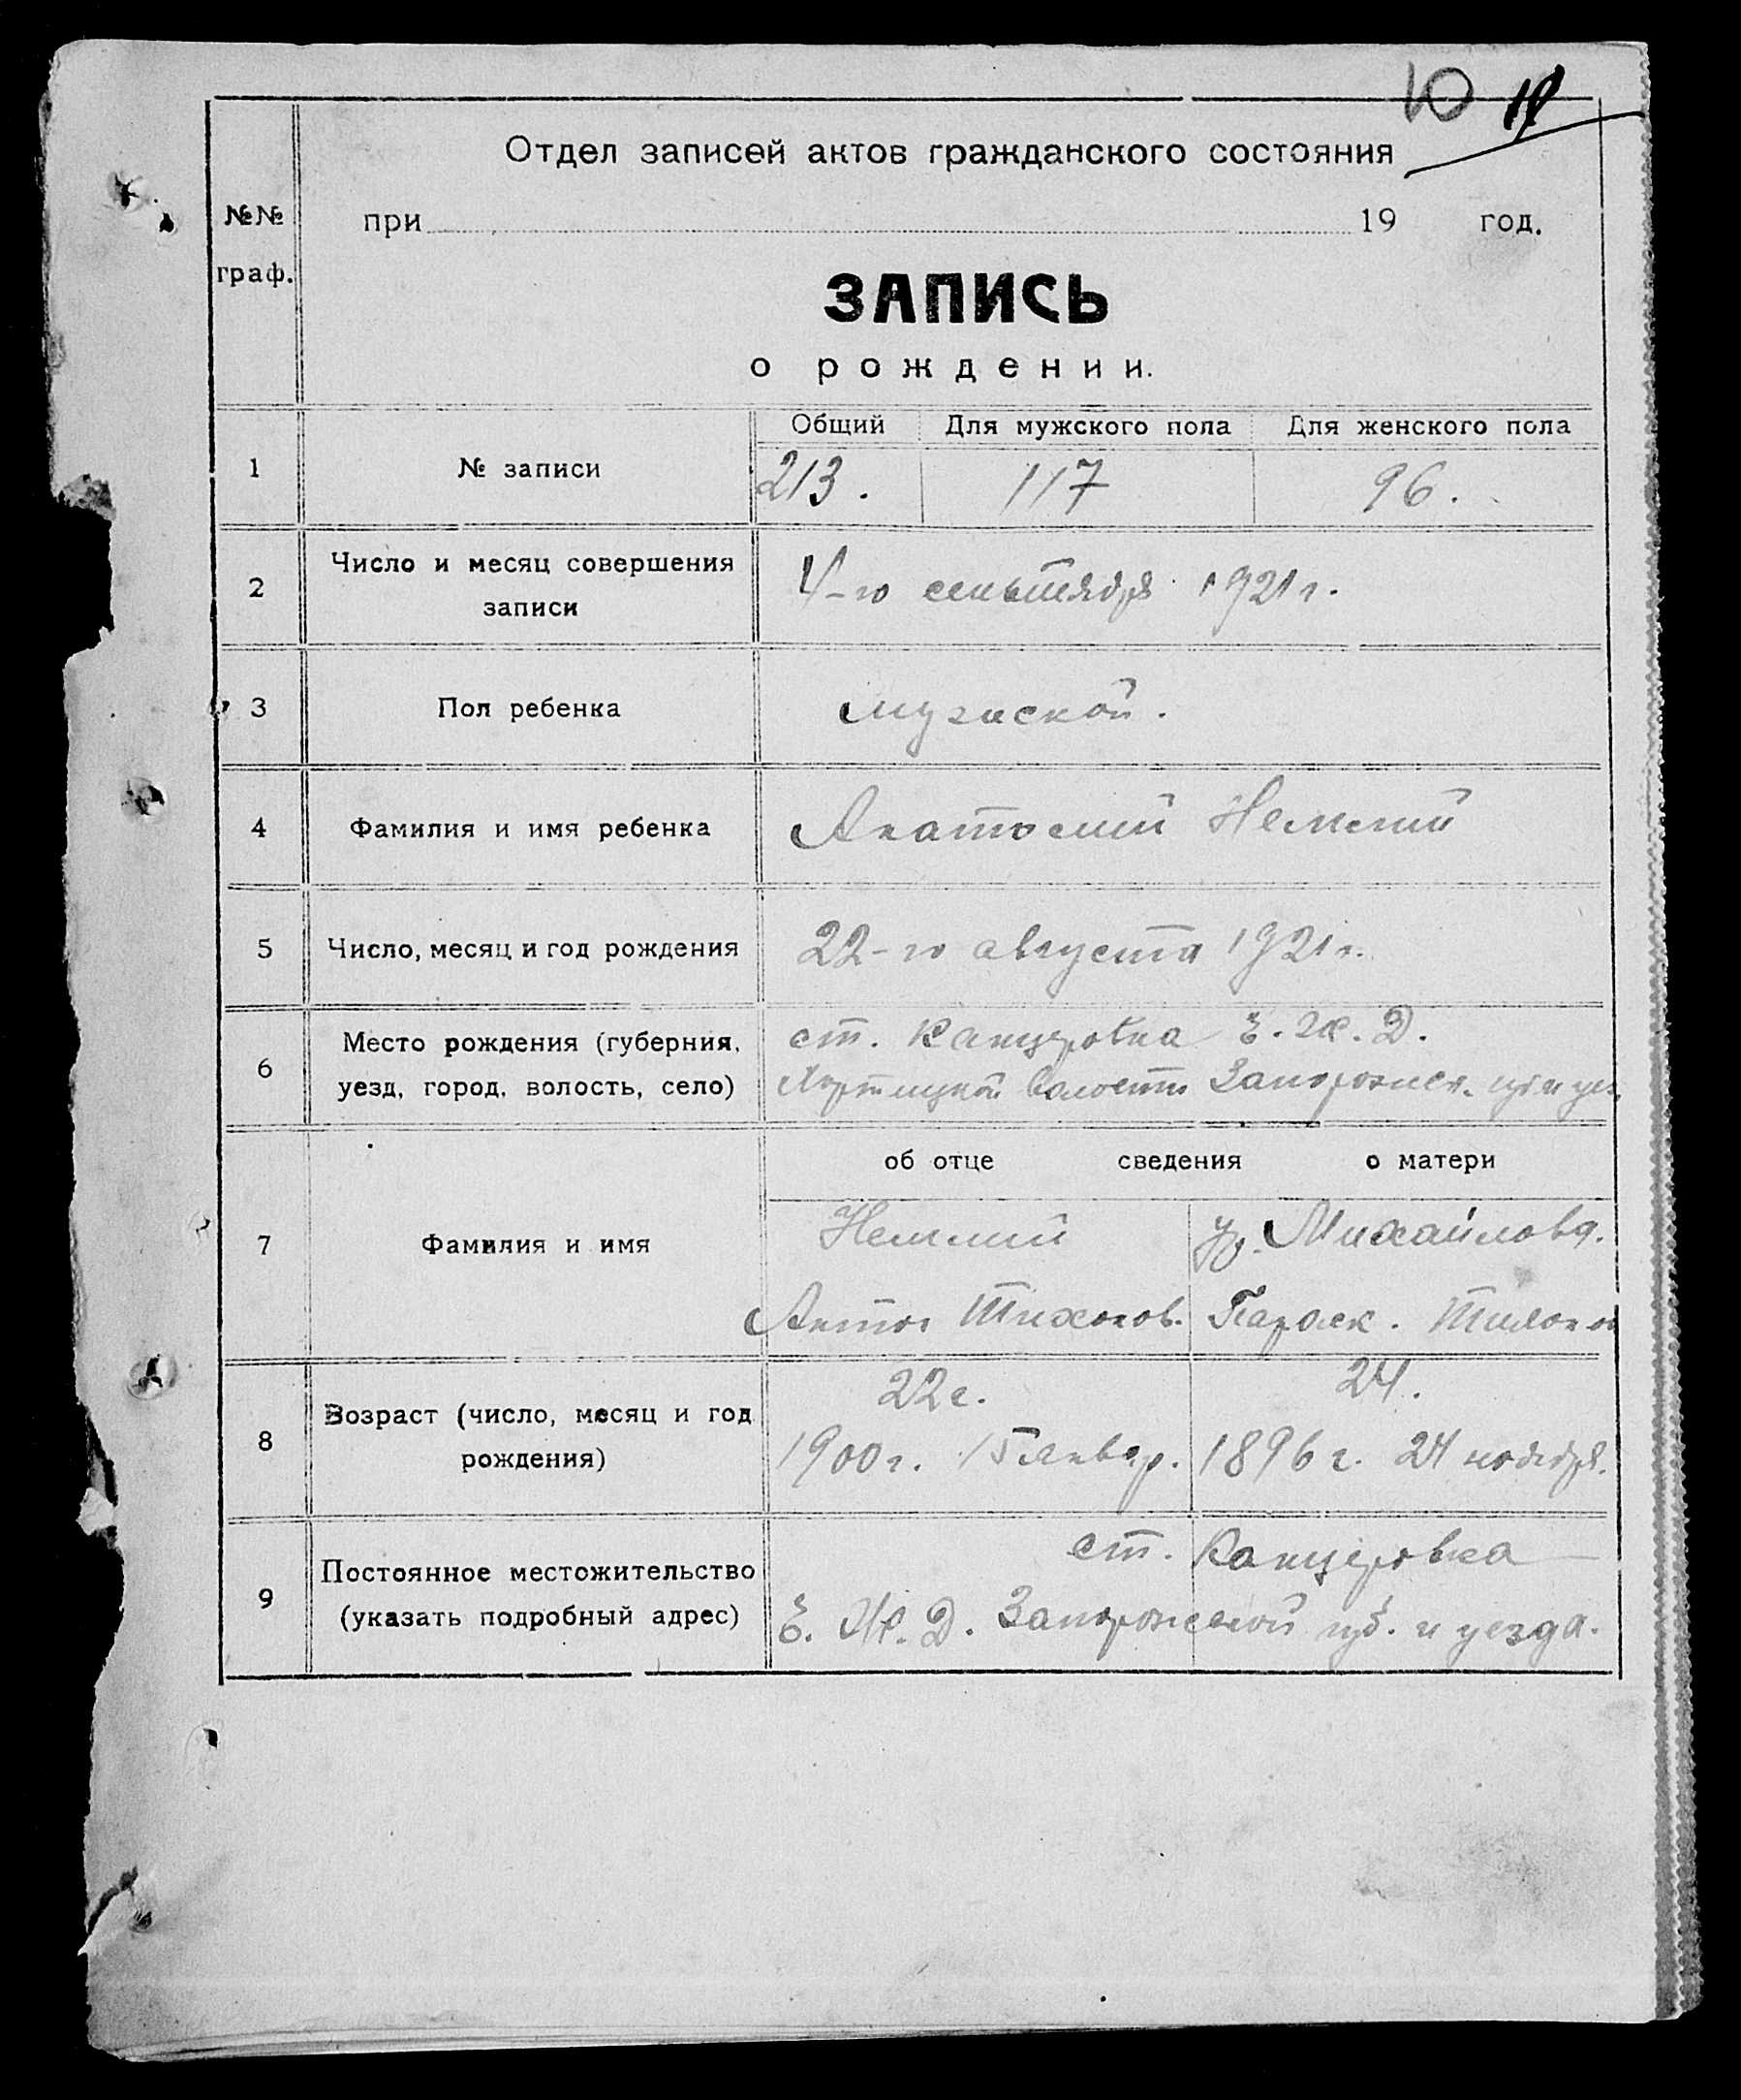 10
Отдел записей актов гражданского состояния
№№ граф.
при 19 год.
ЗАПИСЬ
о рождении.
Общий Для мужского пола Для женского пола
1 № записи 213. 117 96.
2 Число и месяц совершения записи 4-го сентября 1921 г.
3 Пол ребенка мужской.
4 Фамилия и имя ребенка Анатолий
5 Число, месяц и год рождения 22-го августа 1921 г.
6 Место рождения (губерния, уезд, город, волость, село)
ст. Канцеровка Е. Ж. Д.
Хортицкой волости Запорожск. губ и уез.
об отце сведения о матери
7 Фамилия и имя
ур. Михайлова.
Антон Тихонов. Параск. Тихонов
8 Возраст (число, месяц и год рождения)
22 г. 24.
1900 г. 15 январ. 1896 г. 24 ноября.
9 Постоянное местожительство (указать подробный адрес)
ст. Канцеровка
Е. Ж. Д. Запорожской губ. и уезда.